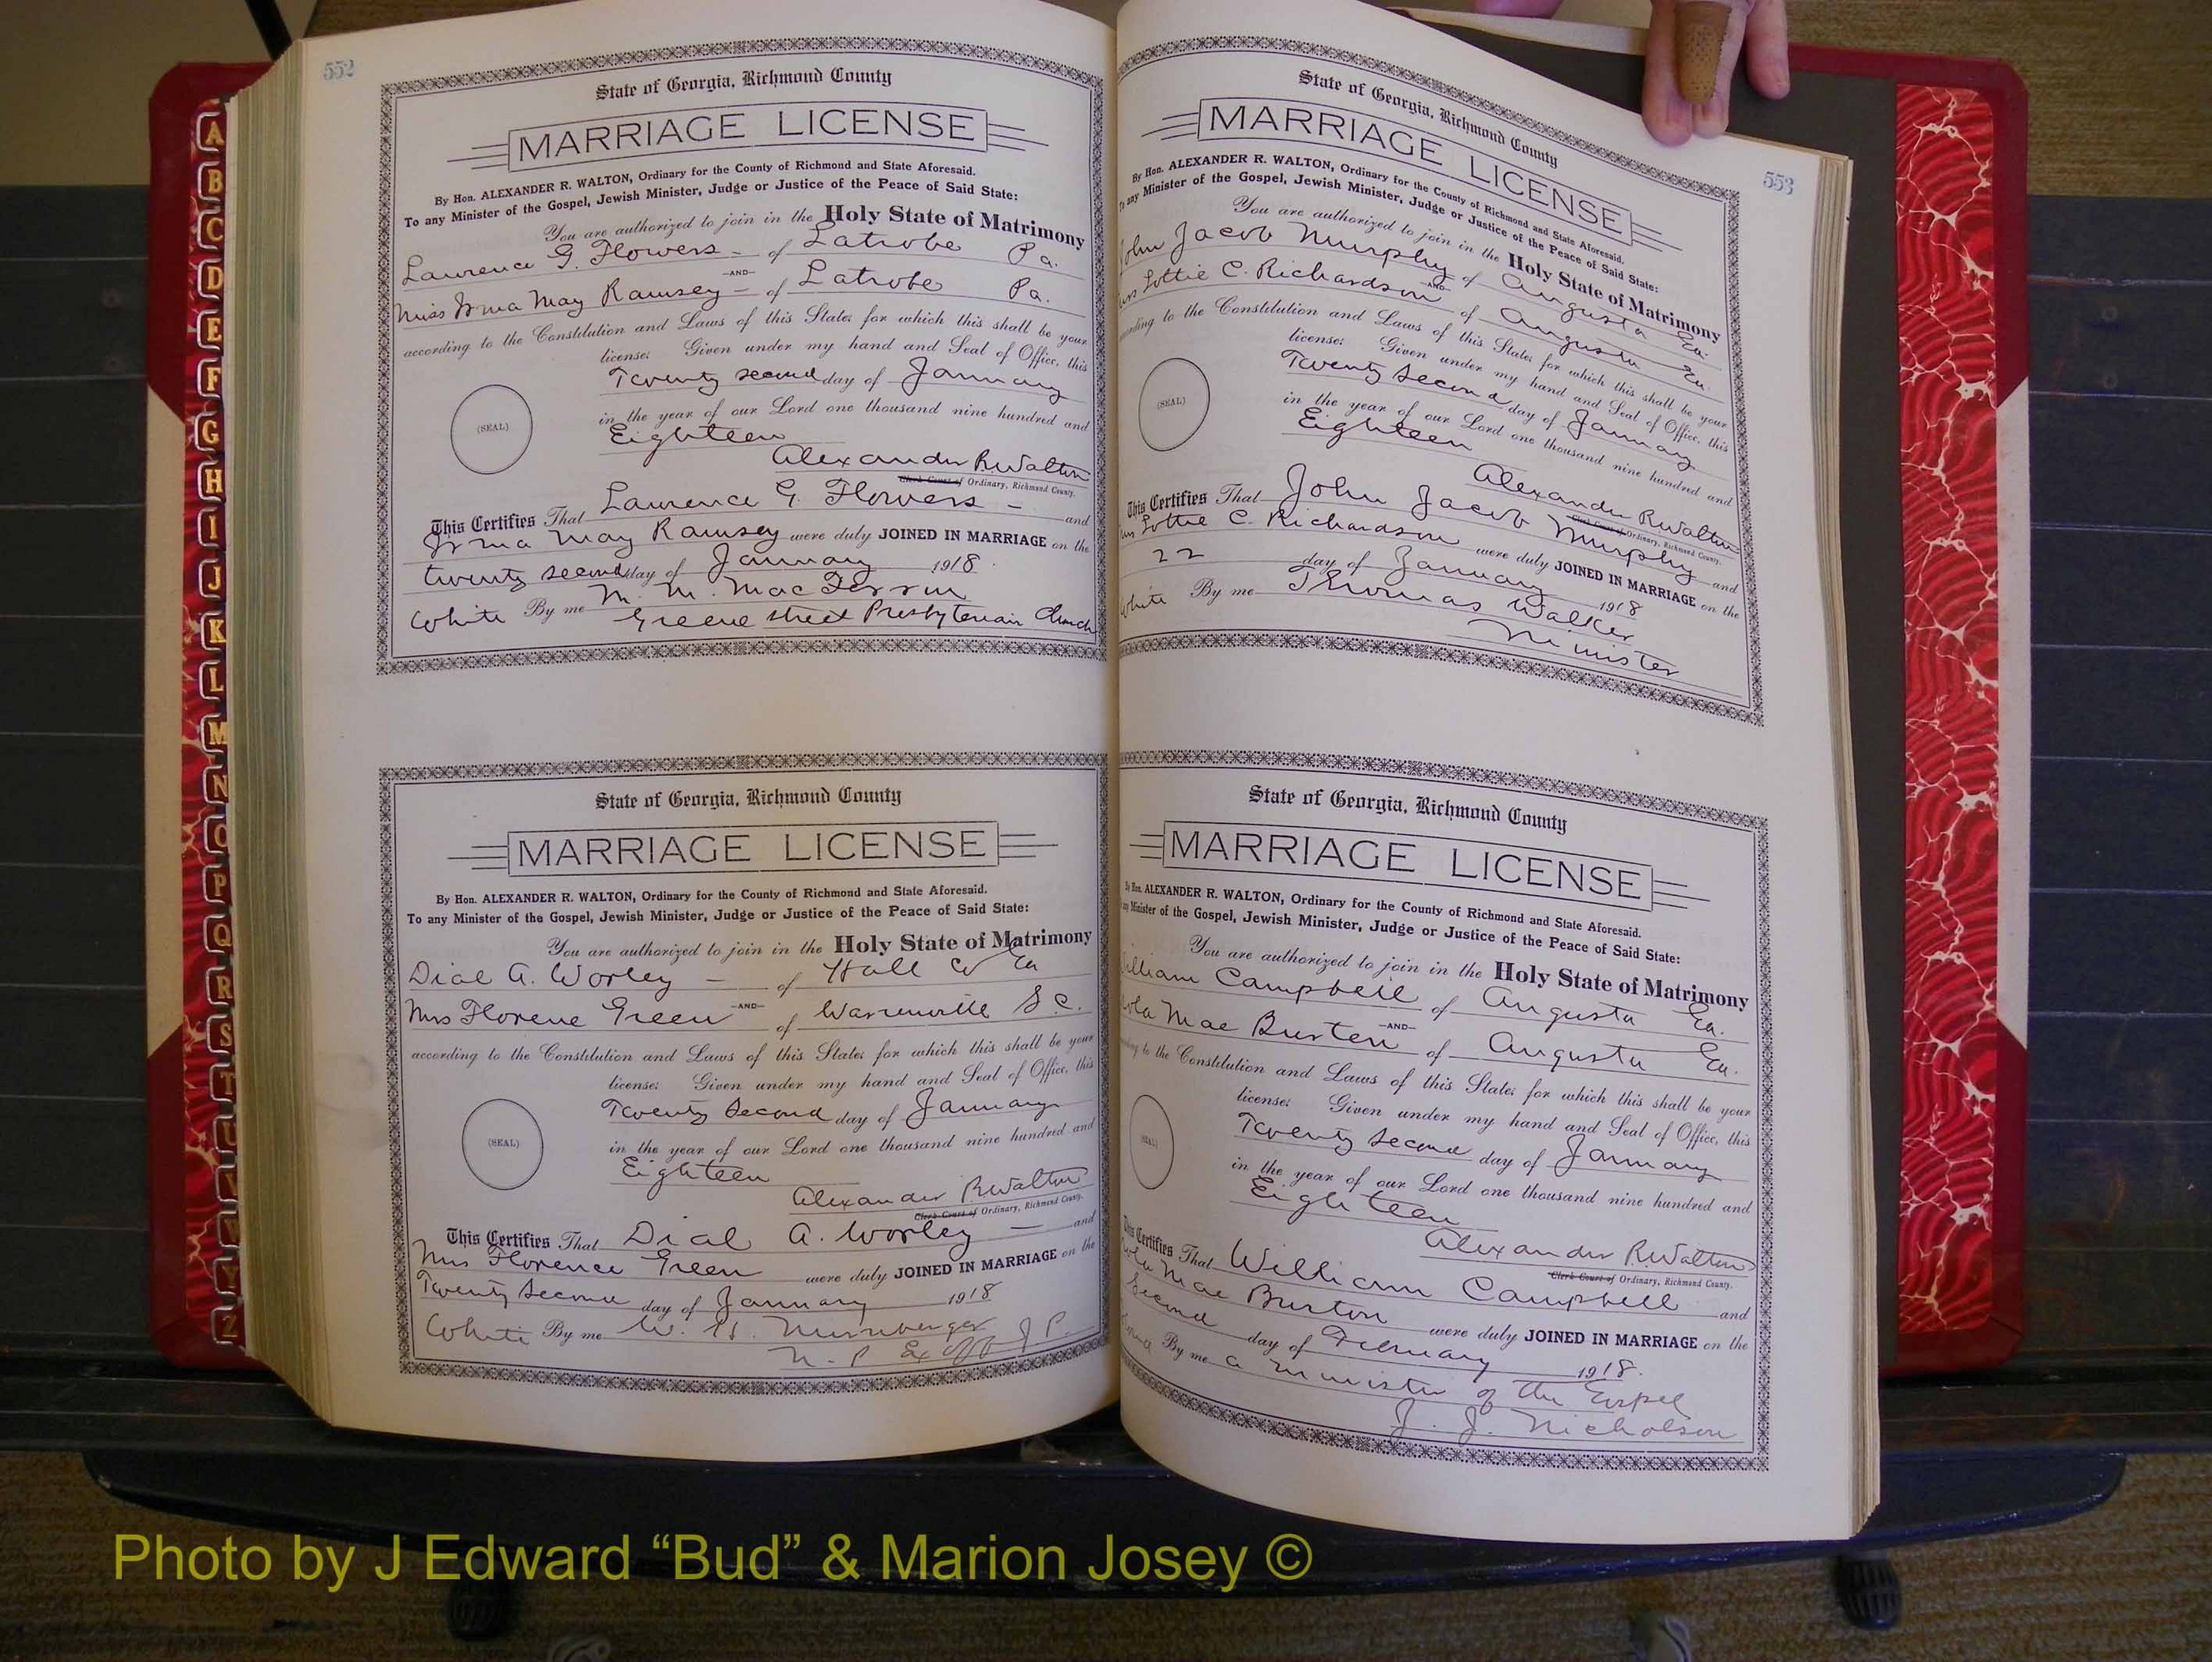 552
State of Georgia, Richmond County
MARRIAGE LICENSE
By Hon. ALEXANDER R. WALTON, Ordinary for the County of Richmond and State Aforesaid.
To any Minister of the Gospel, Jewish Minister, Judge or Justice of the Peace of Said State:
You are authorized to join in the Holy State of Matrimony
Laurence G. Flowers - of Latrobe Pa.
-AND-
Miss Irma May Ramsey - of Latrobe Pa.
according to the Constitution and Laws of this State; for which this shall be your
license: Given under my hand and Seal of Office, this
Twenty second day of January
(SEAL)
in the year of our Lord one thousand nine hundred and
Eighteen
Alexander R Walton
Clerk Court of Ordinary, Richmond County.
This Certifies That Laurence G. Flowers - and
Irma May Ramsey were duly JOINED IN MARRIAGE on the
twenty second day of January 1918.
White By me M. M. MacFerrin
Greene street Presbyterian Church
State of Georgia, Richmond County
MARRIAGE LICENSE
By Hon. ALEXANDER R. WALTON, Ordinary for the County of Richmond and State Aforesaid.
To any Minister of the Gospel, Jewish Minister, Judge or Justice of the Peace of Said State:
You are authorized to join in the Holy State of Matrimony
Dial A. Worley - of Hall Co Ga
-AND-
Mrs Florene Green of Warrenville S.C.
according to the Constitution and Laws of this State; for which this shall be your
license: Given under my hand and Seal of Office, this
Twenty Second day of January
(SEAL)
in the year of our Lord one thousand nine hundred and
Eighteen
Alexander R Walton
Clerk Court of Ordinary, Richmond County.
This Certifies That Dial A. Worley - and
Mrs Florence Green were duly JOINED IN MARRIAGE on the
Twenty Second day of January 1918
White By me W. H. Nurnberger
N. P Ex Off J P.
553
State of Georgia, Richmond County
MARRIAGE LICENSE
By Hon. ALEXANDER R. WALTON, Ordinary for the County of Richmond and State Aforesaid.
To any Minister of the Gospel, Jewish Minister, Judge or Justice of the Peace of Said State:
You are authorized to join in the Holy State of Matrimony
John Jacob Murphy of Augusta Ga.
-AND-
Lottie C. Richardson of Augusta Ga.
to the Constitution and Laws of this State; for which this shall be your
license: Given under my hand and Seal of Office, this
Twenty Second day of January
(SEAL)
in the year of our Lord one thousand nine hundred and
Eighteen
Alexander R Walton
Clerk Court of Ordinary, Richmond County.
This Certifies That John Jacob Murphy and
Lottie C. Richardson were duly JOINED IN MARRIAGE on the
22 day of January 1918
White By me Thomas Walker
Minister
State of Georgia, Richmond County
MARRIAGE LICENSE
By Hon. ALEXANDER R. WALTON, Ordinary for the County of Richmond and State Aforesaid.
Minister of the Gospel, Jewish Minister, Judge or Justice of the Peace of Said State:
You are authorized to join in the Holy State of Matrimony
William Campbell of Augusta Ga.
-AND-
Mae Burton of Augusta Ga.
to the Constitution and Laws of this State; for which this shall be your
license: Given under my hand and Seal of Office, this
Twenty Second day of January
(SEAL)
in the year of our Lord one thousand nine hundred and
Eighteen
Alexander R Walton
Clerk Court of Ordinary, Richmond County.
This Certifies That William Campbell and
Mae Burton were duly JOINED IN MARRIAGE on the
Second day of February 1918.
By me a minister of the Gospel
J. J. Nicholson
A
B
C
D
E
F
G
H
I
J
K
L
M
N
O
P
Q
R
S
T
U
V
W
Y
Z
Photo by J Edward “Bud” & Marion Josey ©